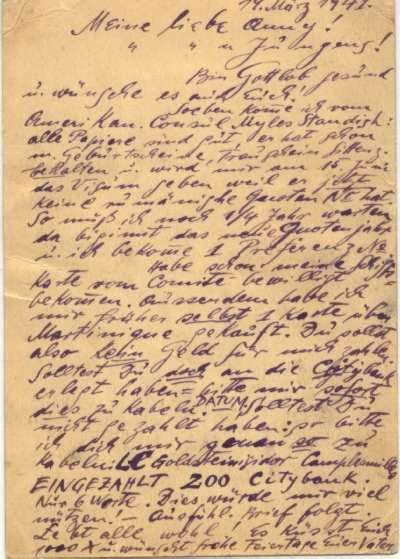 14. März 1941.
Meine liebe Anny!
" " " Jungens!
Bin Gottlob gesund
u. wünsche es auch Euch!
Soeben komme ich vom
Amerikan. Consul Myles Standish:
alle Papiere sind gut er hat schon
m. Geburtscheine, Trauschein
behalten u. wird mir am 15 Juni
das Visum geben weil er jetzt
keine rumänische Quoten № hat.
So muß ich noch 1/4 Jahr warten
da beginnt das neue Quotenjahr
u. ich bekomme 1 Preferenz №
Habe schon meine Schiffs=
Karte vom Comité bewilligt
bekommen. Ausserdem habe ich
mir früher selbst 1 Karte über
Martinique gekauft. Du sollst
also kein Geld für mich zahlen.
Solltest Du doch an die Citybank
erlegt haben = bitte mir sofort
dies zu kabeln. DATUM! Solltest Du
nicht gezahlt haben: so bitte
ich Dich mir genau so zu
kabeln: LC Goldsteinisidor Campdesmilles
EINGEZAHLT 200 Citybank.
Nur 6 Worte. Dies würde mir viel
nützen! Ausführl. Brief folgt.
Lebt alle wohl! Es küsst Euch
1000 X u. wünscht frohe Feiertage Euer Vater